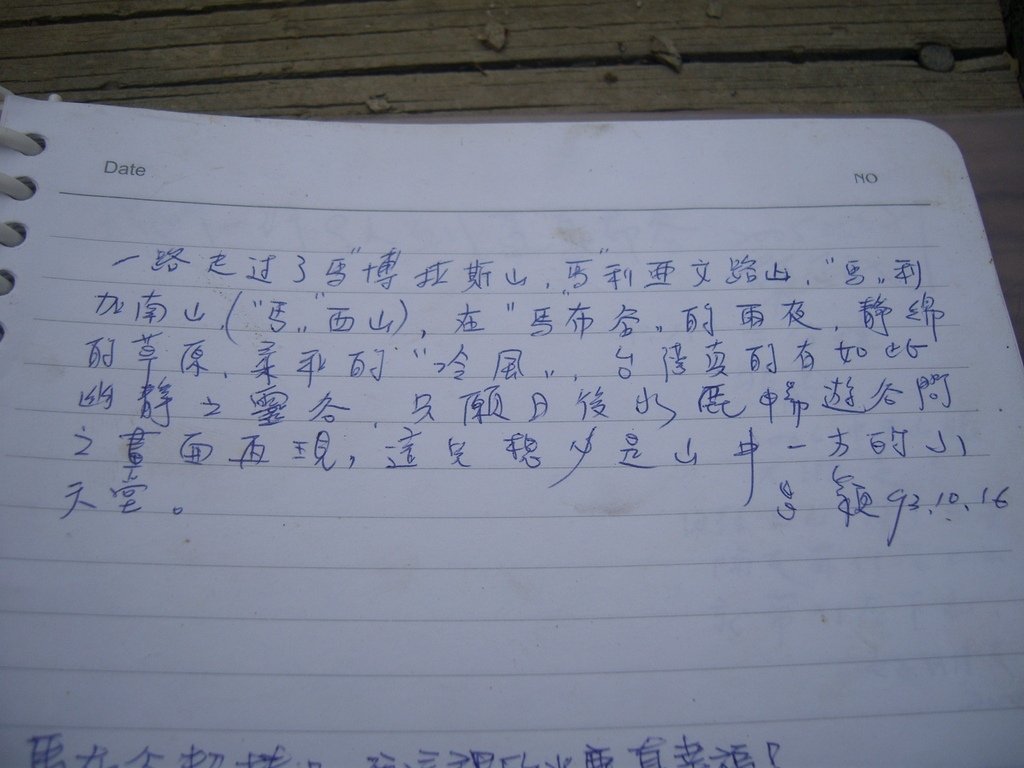 Date
NO
一路走过了"馬"博拉斯山,"馬"利亞文路山,"馬"利
加南山("馬"西山),在"馬布谷"的雨夜,靜綿
的草原,柔和的"冷風",台灣真的有如此
幽靜之靈谷,只願日後水鹿 遊谷間
之畫面再現,這兒 是山中一方的小
天堂。
穎 93.10.16